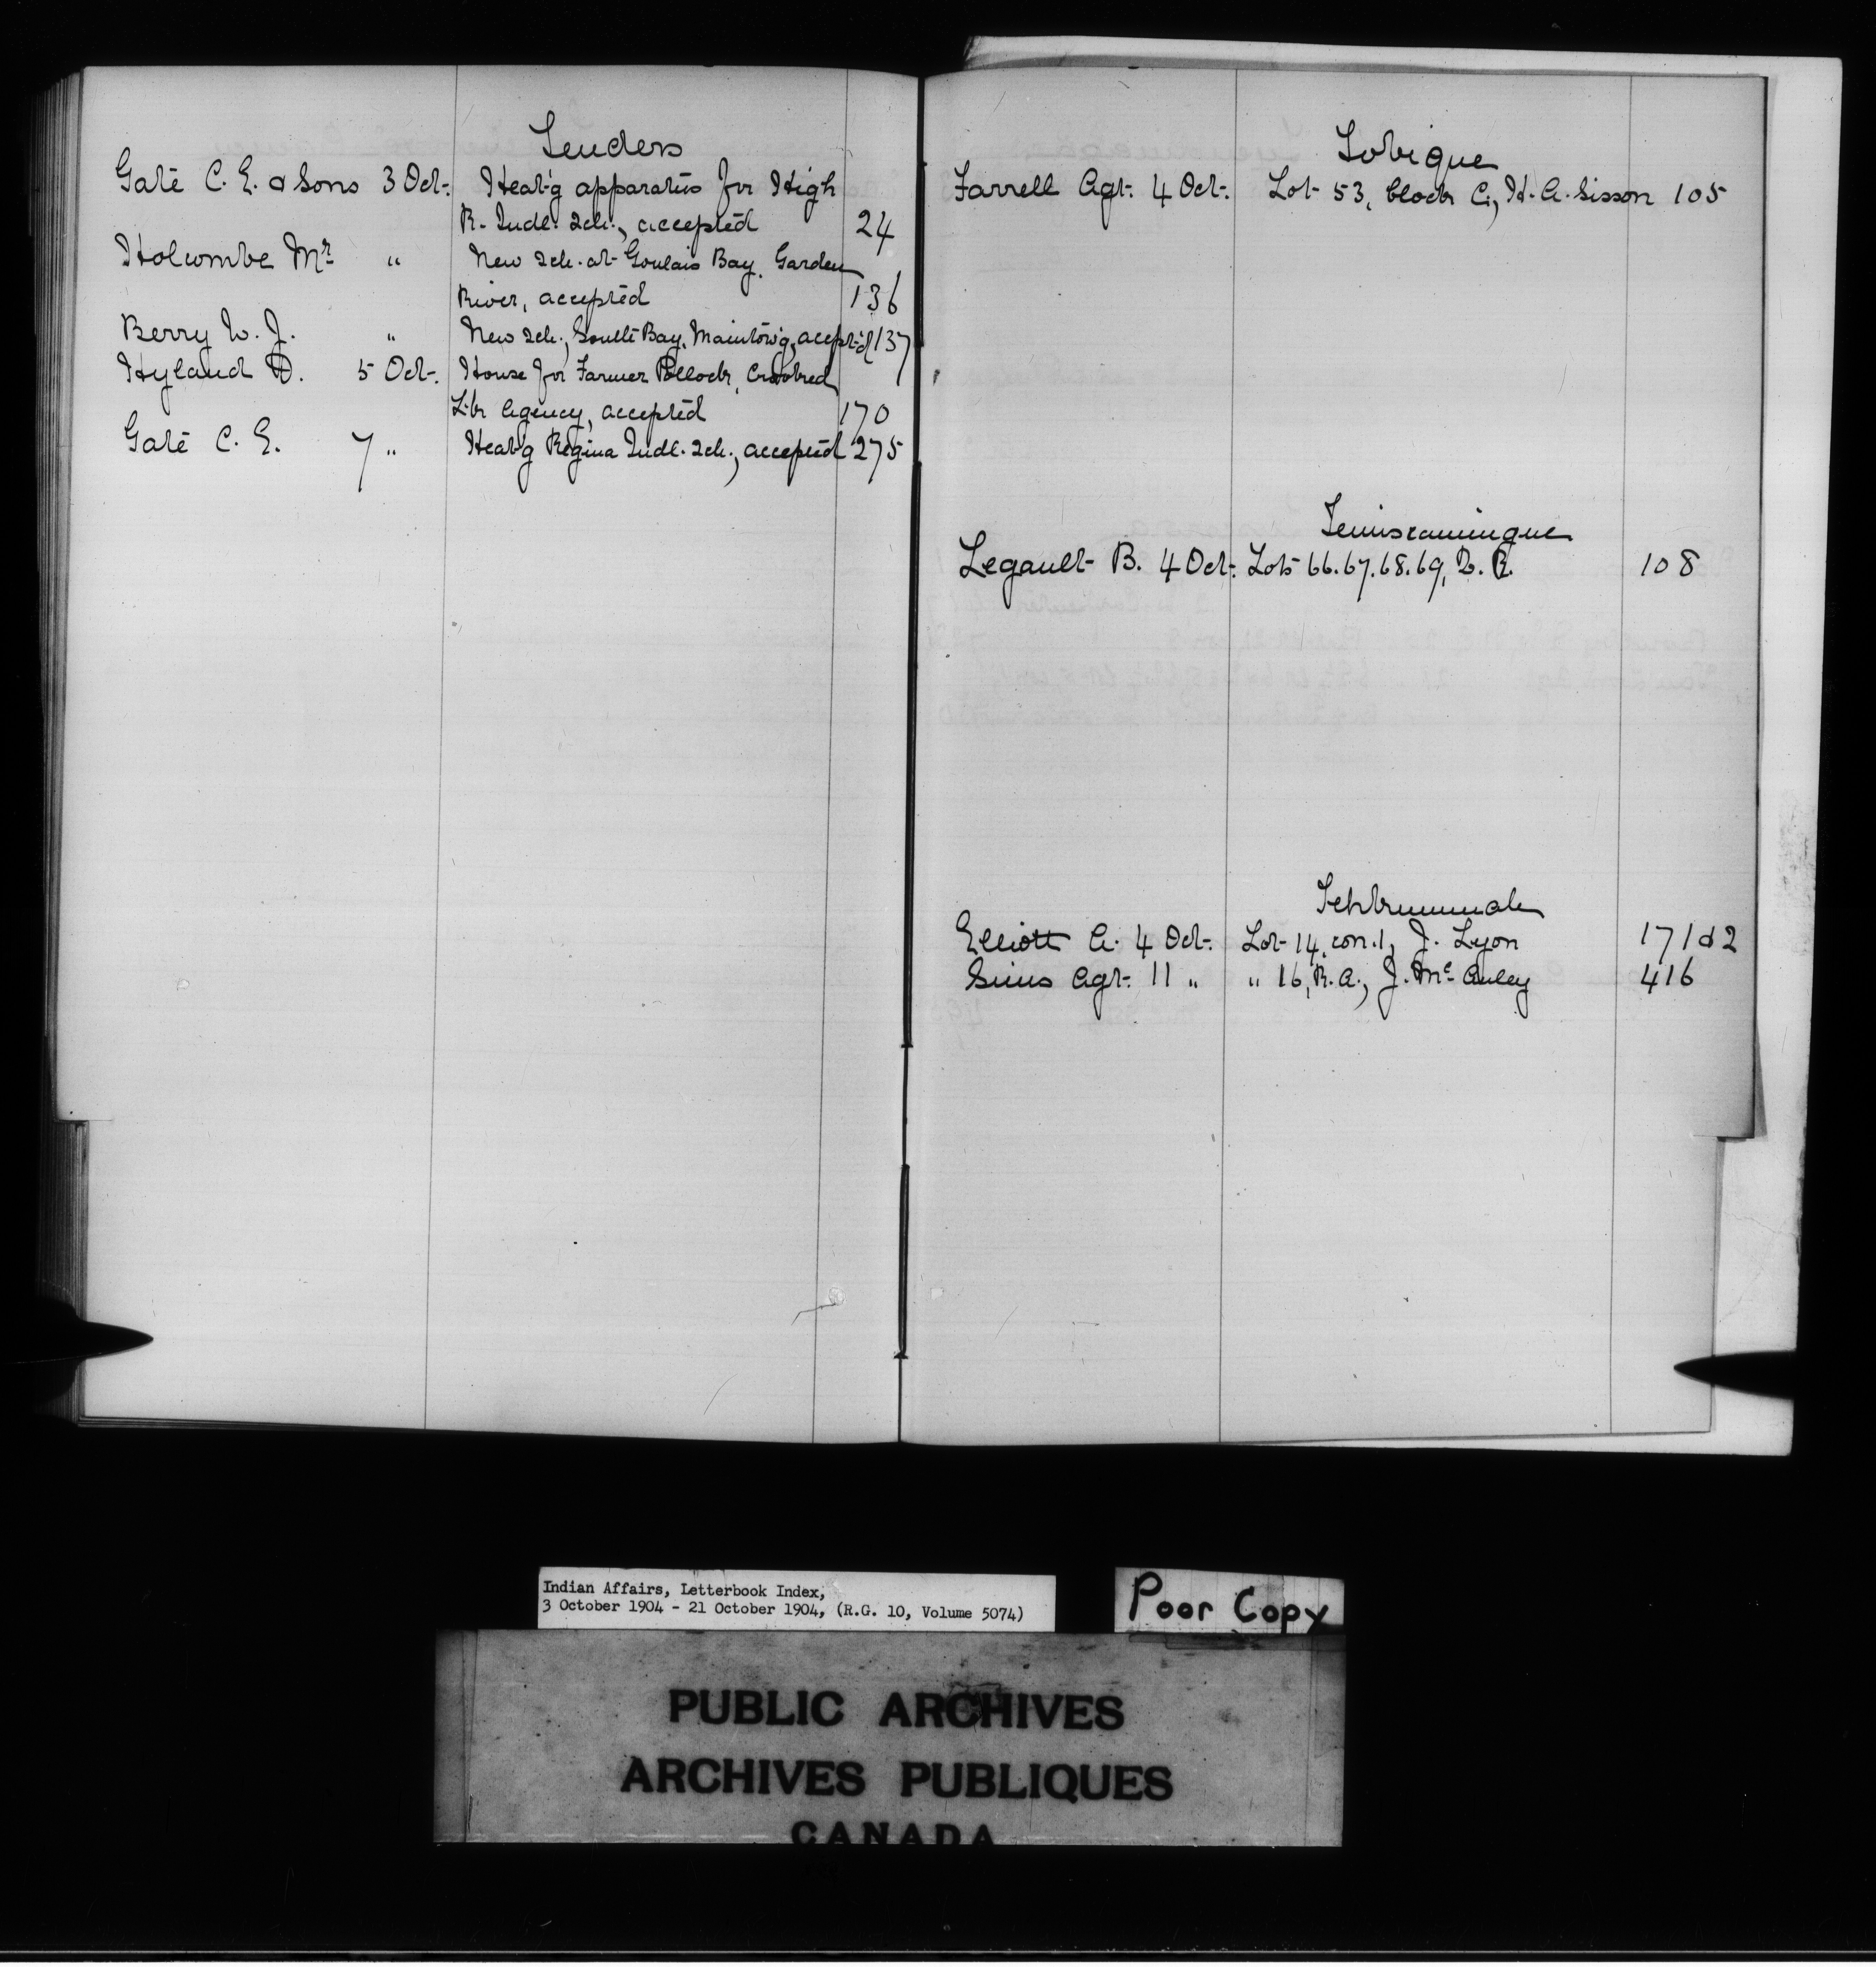 Tenders
Gate C. E. & Sons 3 Oct. Heat'g apparatus for High
R. Indl. Sch., accepted 24
Holcombe Mr. " New Sch. at Goulais Bay, Garden
River, accepted 136
Berry W. J. " New Sch., South Bay, Manitow'g, accept'd 137
Hyland D. 5 Oct. House for Farmer Pollock, Crooked
Lk. Agency, accepted 170
Gate C. E. 7 " Heat'g Regina Indl. Sch., accepted 275
Tobique
Farrell Agt. 4 Oct. Lot 53, block C, H. A. Sisson 105
Temiscamingue
Legault B. 4 Oct. Lots 66.67.68.69, D. R. 108
Tehkummah
Elliott A. 4 Oct. Lot 14, con. 1, J. Lyon 171 & 2
Sims Agt. 11 " " 16, R. A., J. McAuley 416
Indian Affairs, Letterbook Index,
3 October 1904 - 21 October 1904, (R.G. 10, Volume 5074)
Poor Copy
PUBLIC ARCHIVES
ARCHIVES PUBLIQUES
CANADA